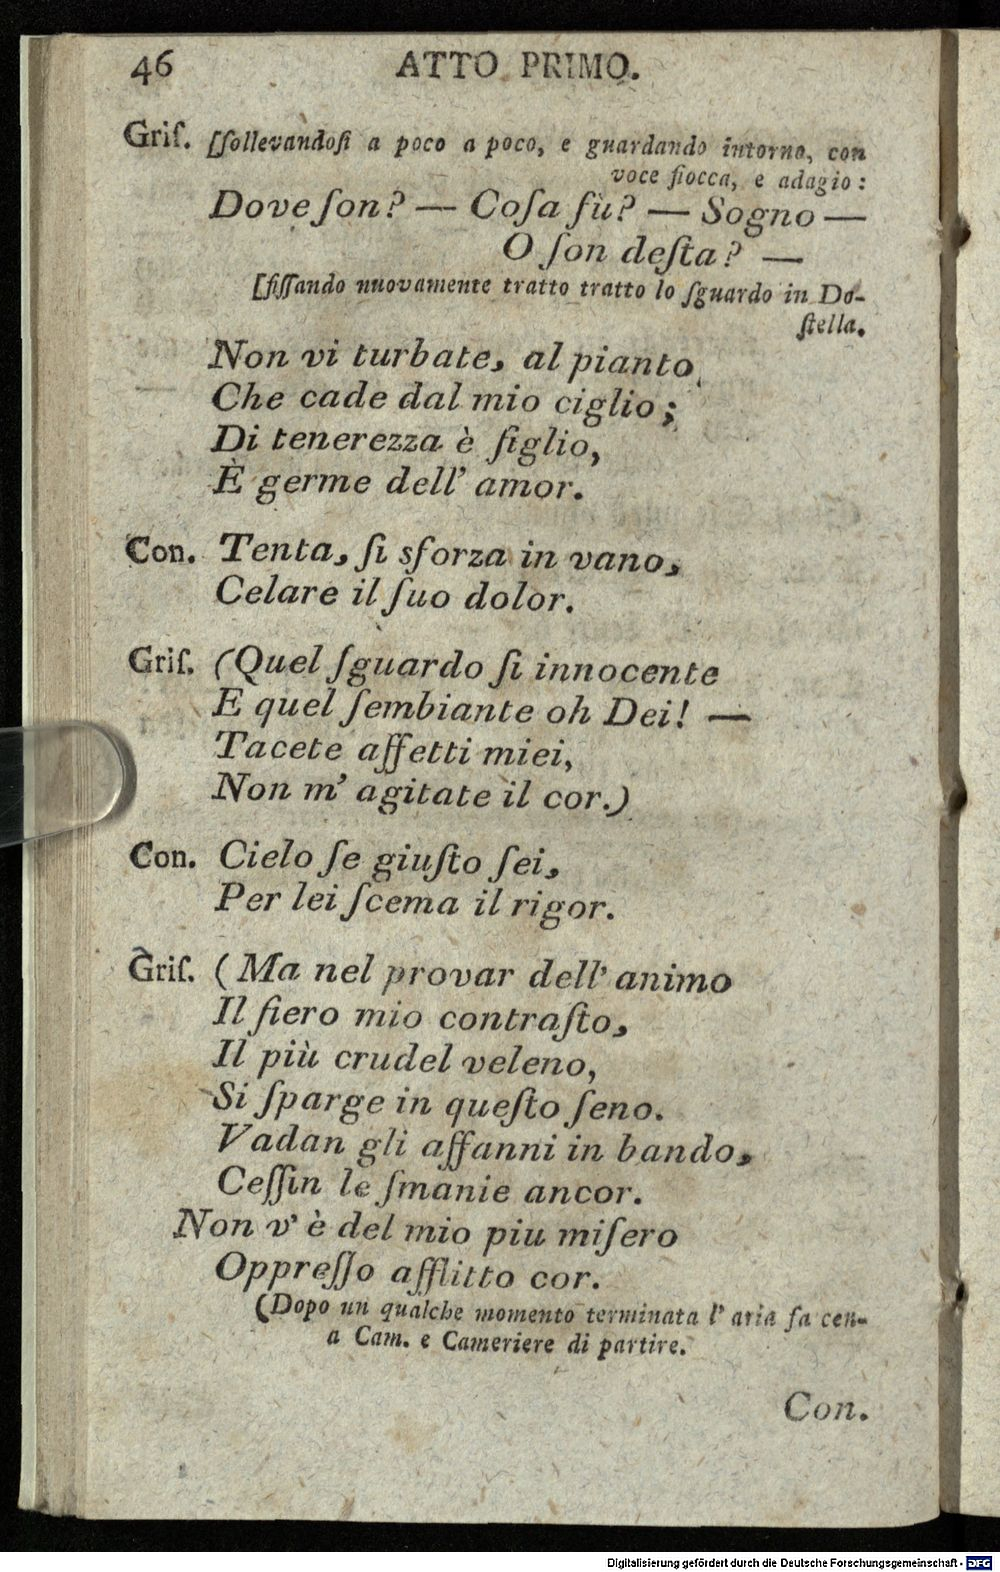 46 ATTO PRIMO.
Griſ. [ſollevandoſi a poco a poco, e guardando intorno, con
voce fiocca, e adagio:
Dove ſon? — Coſa fù? — Sogno —
O ſon deſta? —
[fiſſando nuovamente tratto tratto lo ſguardo in Do-
ſtella.
Non vi turbate, al pianto
Che cade dal mio ciglio;
Di tenerezza è figlio,
È germe dell' amor.
Con. Tenta, ſi sforza in vano,
Celare il ſuo dolor.
Griſ. (Quel ſguardo ſi innocente
E quel ſembiante oh Dei! —
Tacete affetti miei,
Non m' agitate il cor.)
Con. Cielo ſe giuſto ſei,
Per lei ſcema il rigor.
Griſ. (Ma nel provar dell' animo
Il fiero mio contraſto,
Il più crudel veleno,
Si ſparge in queſto ſeno.
Vadan gli affanni in bando,
Ceſſin le ſmanie ancor.
Non v' è del mio piu miſero
Oppreſſo afflitto cor.
(Dopo un qualche momento terminata l' aria fa cen-
a Cam. e Cameriere di partire.
Con.
Digitalisierung gefördert durch die Deutsche Forschungsgemeinschaft - DFG